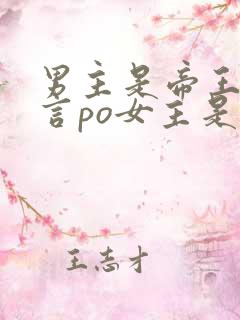 男主是帝王
言po女主是
王志才